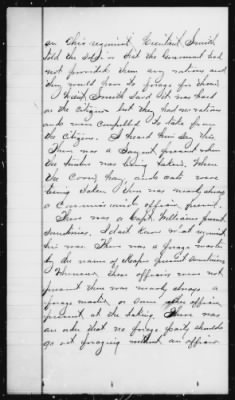 in this regiment. Lieutenant Smith
told the soldiers that the Government had
not provided them any rations and
they would have to forage for them
Lieut. Smith said it was hard
on the citizens but they had no rations
and were compelled to take from
the citizens. I heard him say this.
There was a Sargent present when
the was being taken. When
the Corn, hay, and oats were
being taken there was nearly always
a commissioned officer present.
There was a Capt. Williams present
sometimes. I dont know what regiment
he was. There was a forage master
by the name of present sometimes
Whenever these officers were not
present there was nearly always a
forage master or some other officer
present at the taking. There was
an order that no forage party should
go out foraging without an officer